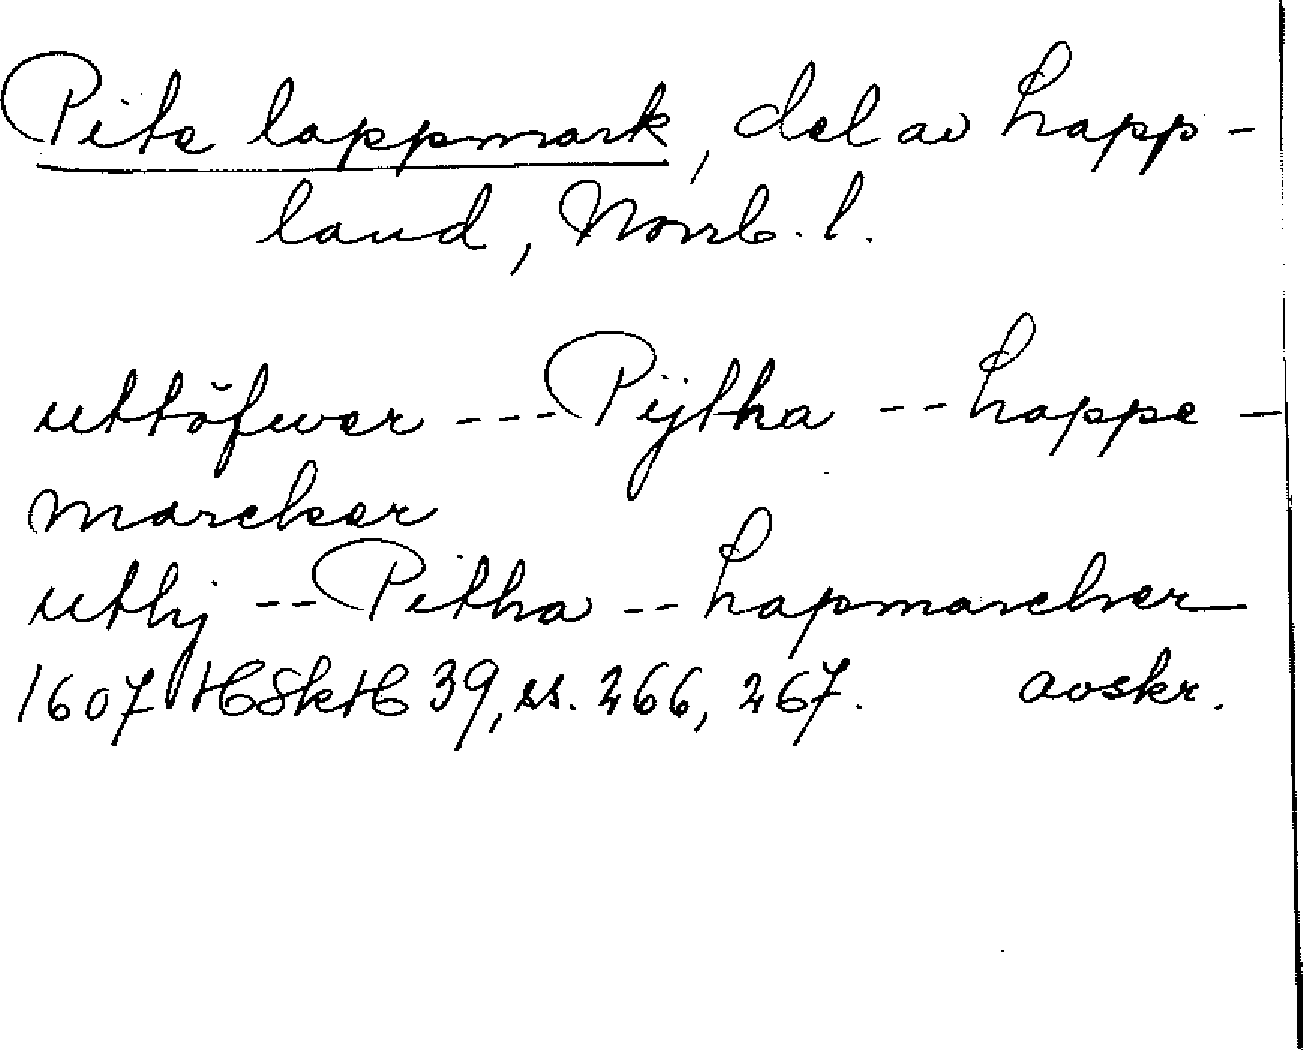 Pite lappmark, del av Lapp-
land, Norrb. l.
uttöfwer --- Pijtha -- Lappe-
marcker
uthj -- Pitha -- Lapmarcker
1607 HSkH 39, ss. 266, 267. avskr.